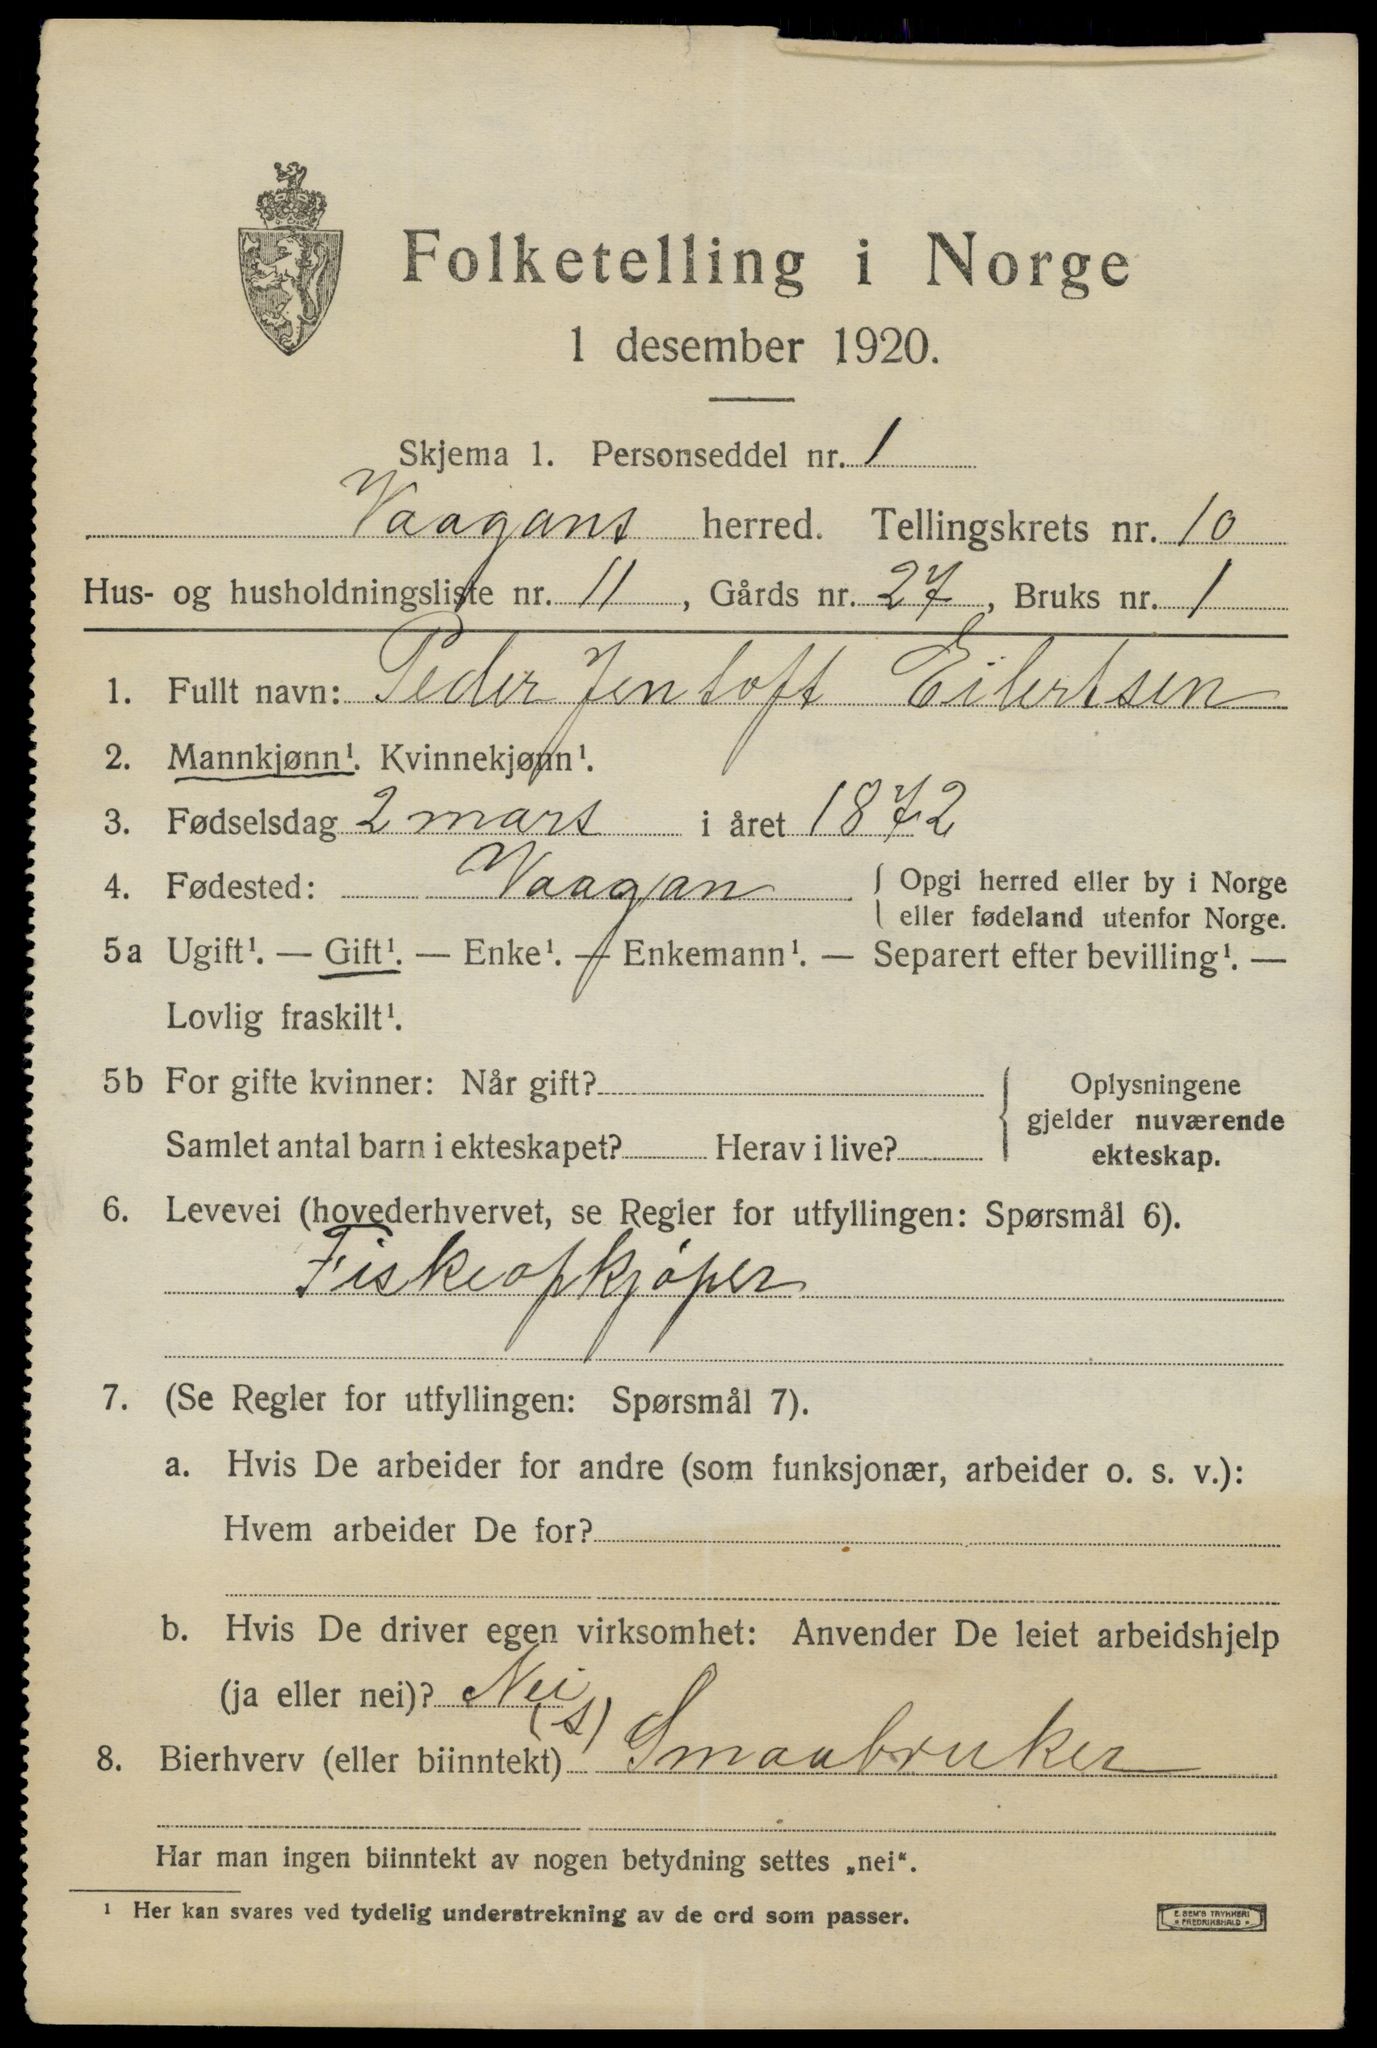 Folketelling i Norge
1 desember 1920.
Skjema 1. Personseddel nr. 1
Vaagans herred. Tellingskrets nr. 10
Hus- og husholdningsliste nr. 11, Gårds nr. 27, Bruks nr. 1
1. Fullt navn: Peder Jentoft Eilertsen
2. Mannkjønn¹. Kvinnekjønn¹.
3. Fødselsdag 2 mars i året 1872
4. Fødested: Vaagan { Opgi herred eller by i Norge
eller fødeland utenfor Norge.
5a Ugift¹. — Gift¹. — Enke¹. — Enkemann¹. — Separert efter bevilling¹. —
Lovlig fraskilt¹.
5b For gifte kvinner: Når gift?
Samlet antal barn i ekteskapet? Herav i live?
{ Oplysningene
gjelder nuværende
ekteskap.
6. Levevei (hovederhvervet, se Regler for utfyllingen: Spørsmål 6).
Fiskeopkjøper
7. (Se Regler for utfyllingen: Spørsmål 7).
a. Hvis De arbeider for andre (som funksjonær, arbeider o. s. v.):
Hvem arbeider De for?
b. Hvis De driver egen virksomhet: Anvender De leiet arbeidshjelp
(ja eller nei)? Nei
(s)
8. Bierhverv (eller biinntekt) Smaabruker
Har man ingen biinntekt av nogen betydning settes „nei“.
¹ Her kan svares ved tydelig understrekning av de ord som passer.
E. SEM'S TRYKKERI
• FREDRIKSHALD •